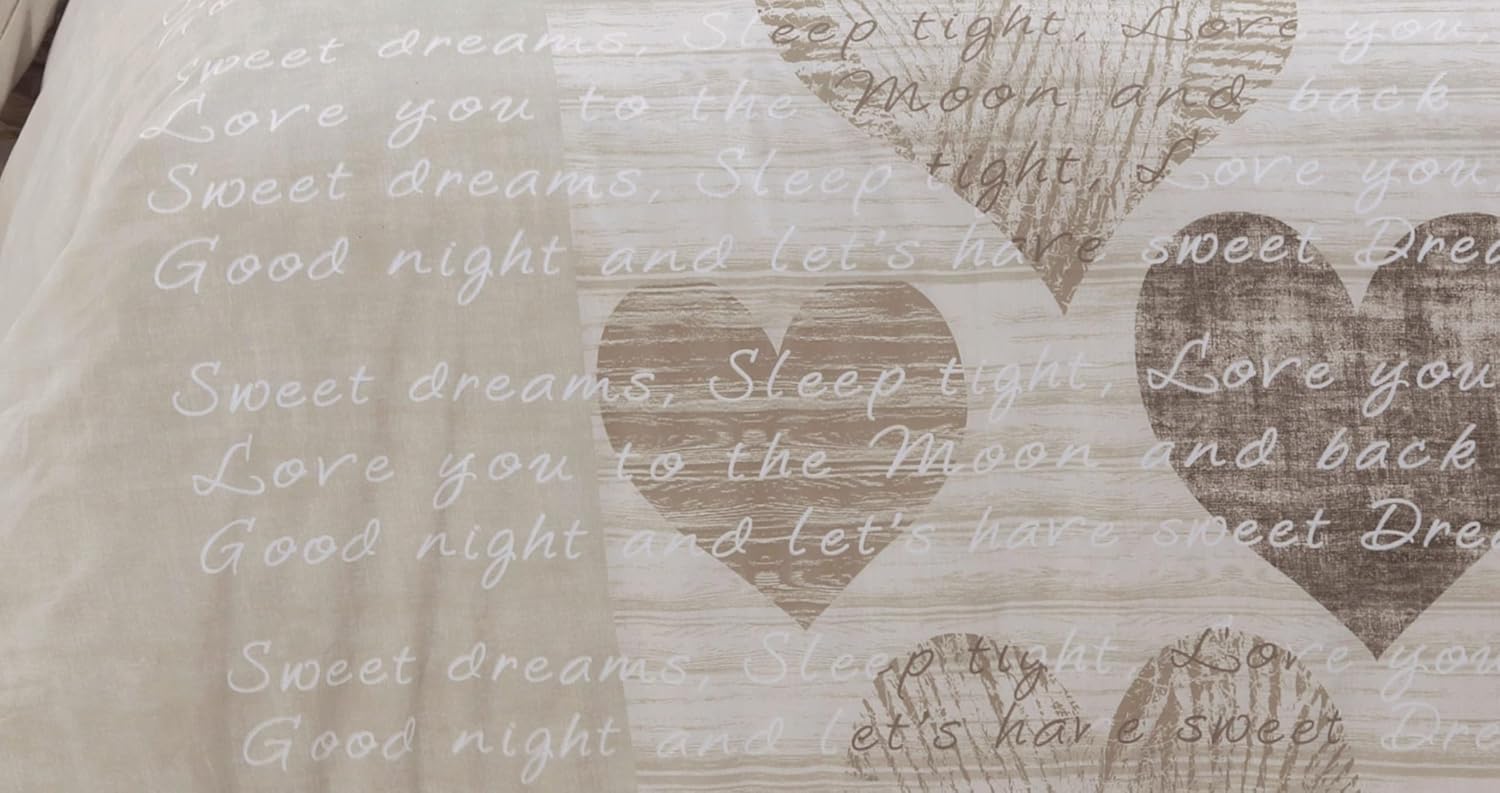 Sweet dreams, Sleep tight, Love you,
Love you to the Moon and back
Sweet dreams, Sleep tight, Love you,
Good night and let's have sweet Drea
Sweet dreams, Sleep tight, Love you
Love you to the Moon and back
Good night and let's have sweet Drea
Sweet dreams, Sleep tight, Love you
Good night and let's have sweet Dre